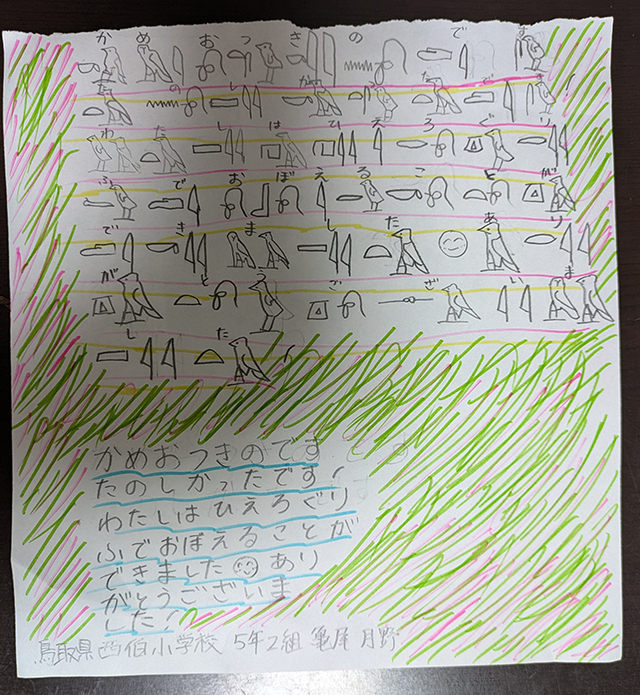 かめおつきのです
たのしかったです!
わたしはひえろぐり
ふでおぼえることが
できました☺あり
がとうございま
した!
かめおつきのです
たのしかったです!
わたしはひえろぐり
ふでおぼえることが
できました☺あり
がとうございま
した!
鳥取県西伯小学校 5年2組 亀尾 月野